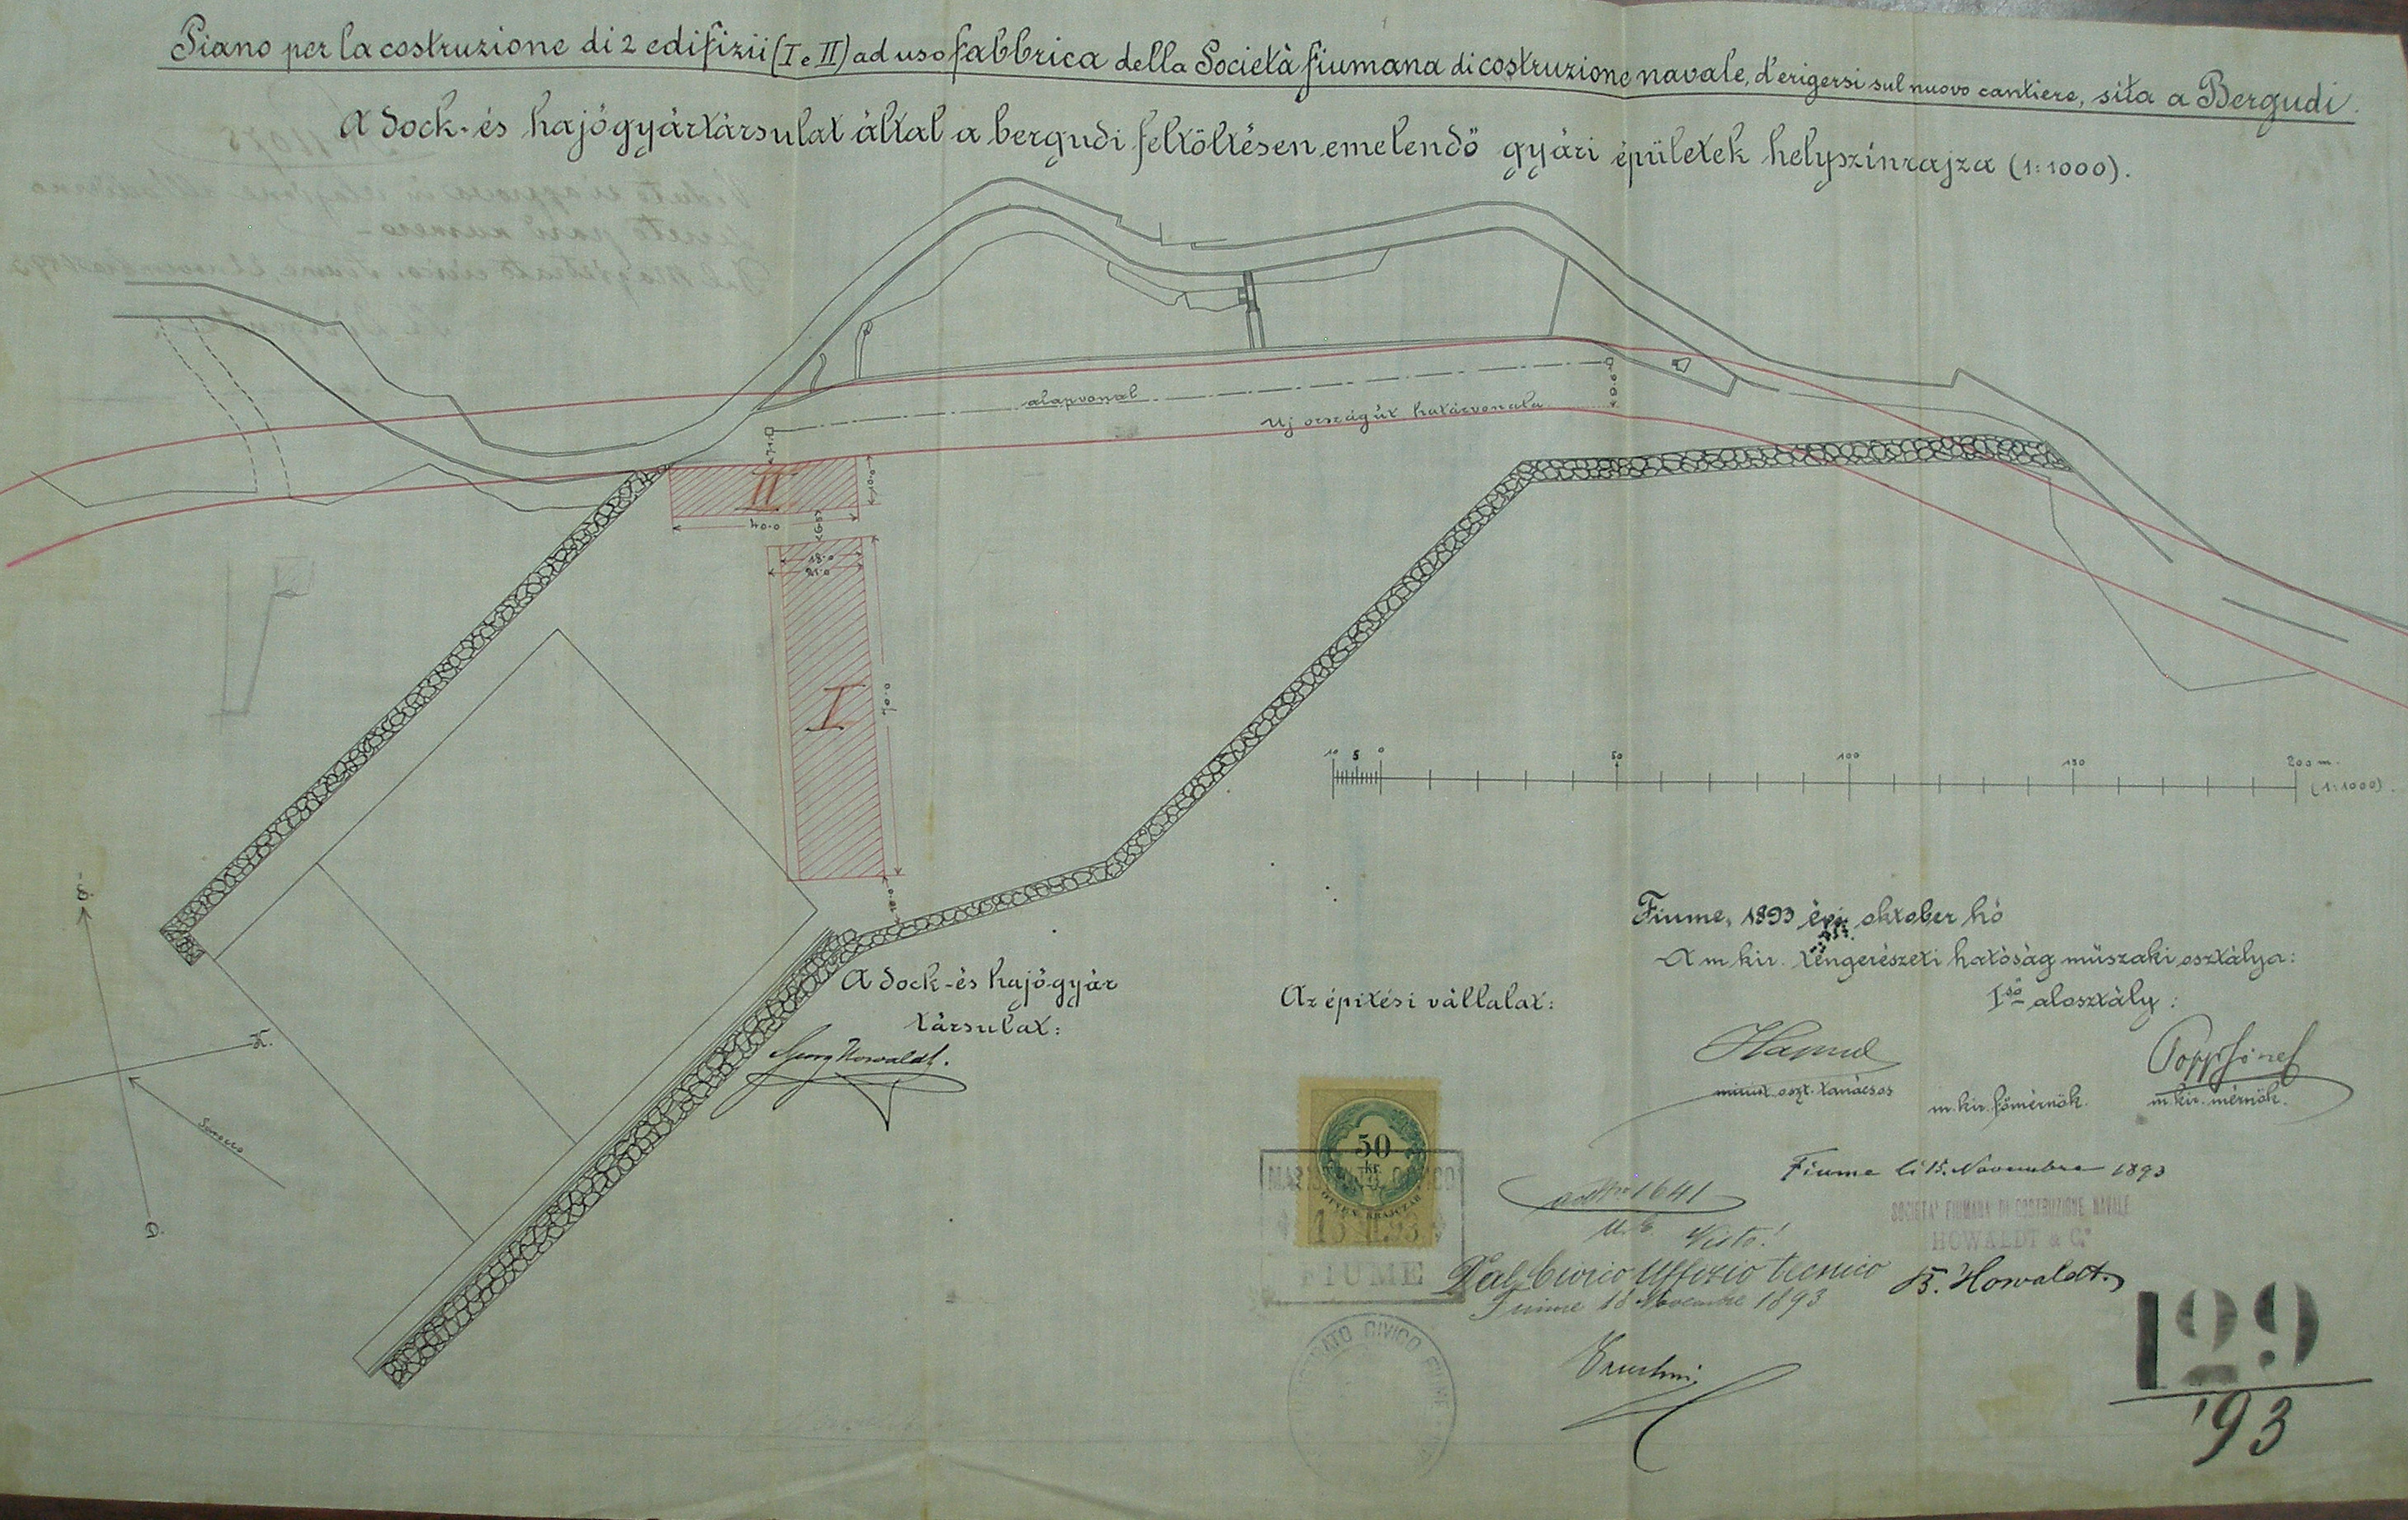 Piano per la costruzione di 2 edifizii (I e II) ad uso fabbrica della Società fiumana di costruzione navale, d'erigersi sul nuovo cantiere, sita a Bergudi.
A dock- és hajógyártársulat által a bergudi feltöltésen emelendő gyári épületek helyszínrajza (1:1000).
alapvonal
Uj országút határvonala
9.0
7.1
II
10.0
40.0
6.5
18.0
21.0
I
70.0
10.0
10 5 0 50 100 150 200 m.
(1:1000).
É.
K.
D.
Sirocco
A dock-és hajógyár
társulat:
Georg Howaldt.
Az épitési vállalat:
Fiume, 1893 évi oktober hó
A m kir. tengerészeti hatóság műszaki osztálya:
I ső alosztály:
műsz. oszt. tanácsos
m. kir. főmérnök.
Popp József
m. kir. mérnök.
50
kr.
ÖTVEN KRAJCZÁR
MAGISTRATO CIVICO
FIUME
Fiume li 15. Novembre 1893
SOCIETA' FIUMANA DI COSTRUZIONE NAVALE
HOWALDT & Co
B. Howaldt.
1641
Visto!
Dal Civico Uffizio tecnico
Fiume 18 Novembre 1893
MAGISTRATO CIVICO FIUME
129
'93